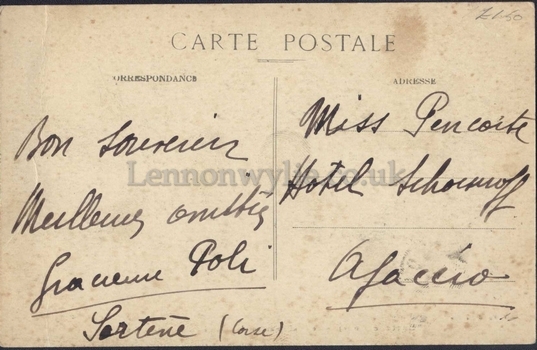 £1.50
CARTE POSTALE
CORRESPONDANCE
ADRESSE
Bon Souvenir
Meilleures amitiés
Poli
Sartène (Corse)
Miss
Hotel
Ajaccio
Lennonwylie.co.uk